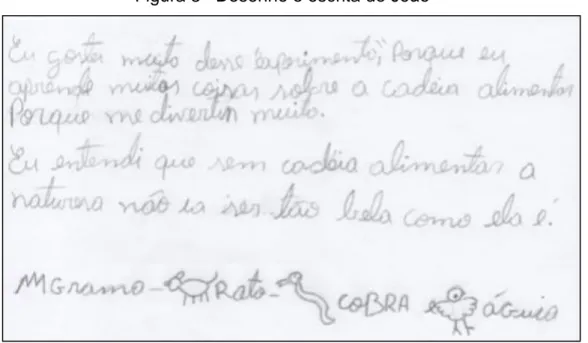 Eu gostei muito desse "experimento", Porque eu
aprende muitas coisas sobre a cadeia alimentar
Porque me divertin muito.
Eu entendi que sem cadeia alimentar a
natureza não ia ser tão bela como ela é.
Grama - Rato - COBRA águia